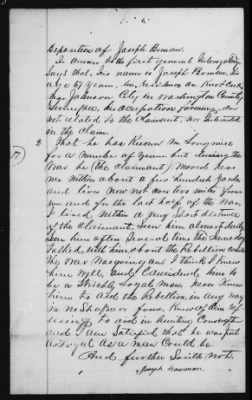 Deposition of Joseph Boman.
In answer to the first general Interrogatory
Says that, his name is Joseph Boman, his
age 67 years, his Residence on Knob Creek
near Johnson City in Washington County
Tennessee, his occupation Farming, am
not related to the Claimant, nor Interested
in the Claim.
2 That he has Known Mr Longmire
for a number of years but during the
War he (the Claimant) moved
me within about a few hundred yards
and live now not over two miles from
me and for the last half of the War
I lived within a very short distance
of the Claimant, seen him almost daily
seen him often several times the same day
talked with him about the Rebellion while
the War was going on and I think I knew
him well, and Considered him to
be a Strictly Loyal man, never Knew
him to aid the Rebellion in any way
in no shape or form, Knew of him
to aid in hunting Conscripts
and I am Satisfied that he was just
as Loyal as a man Could be.
And further Saith not.
Joseph Bowman